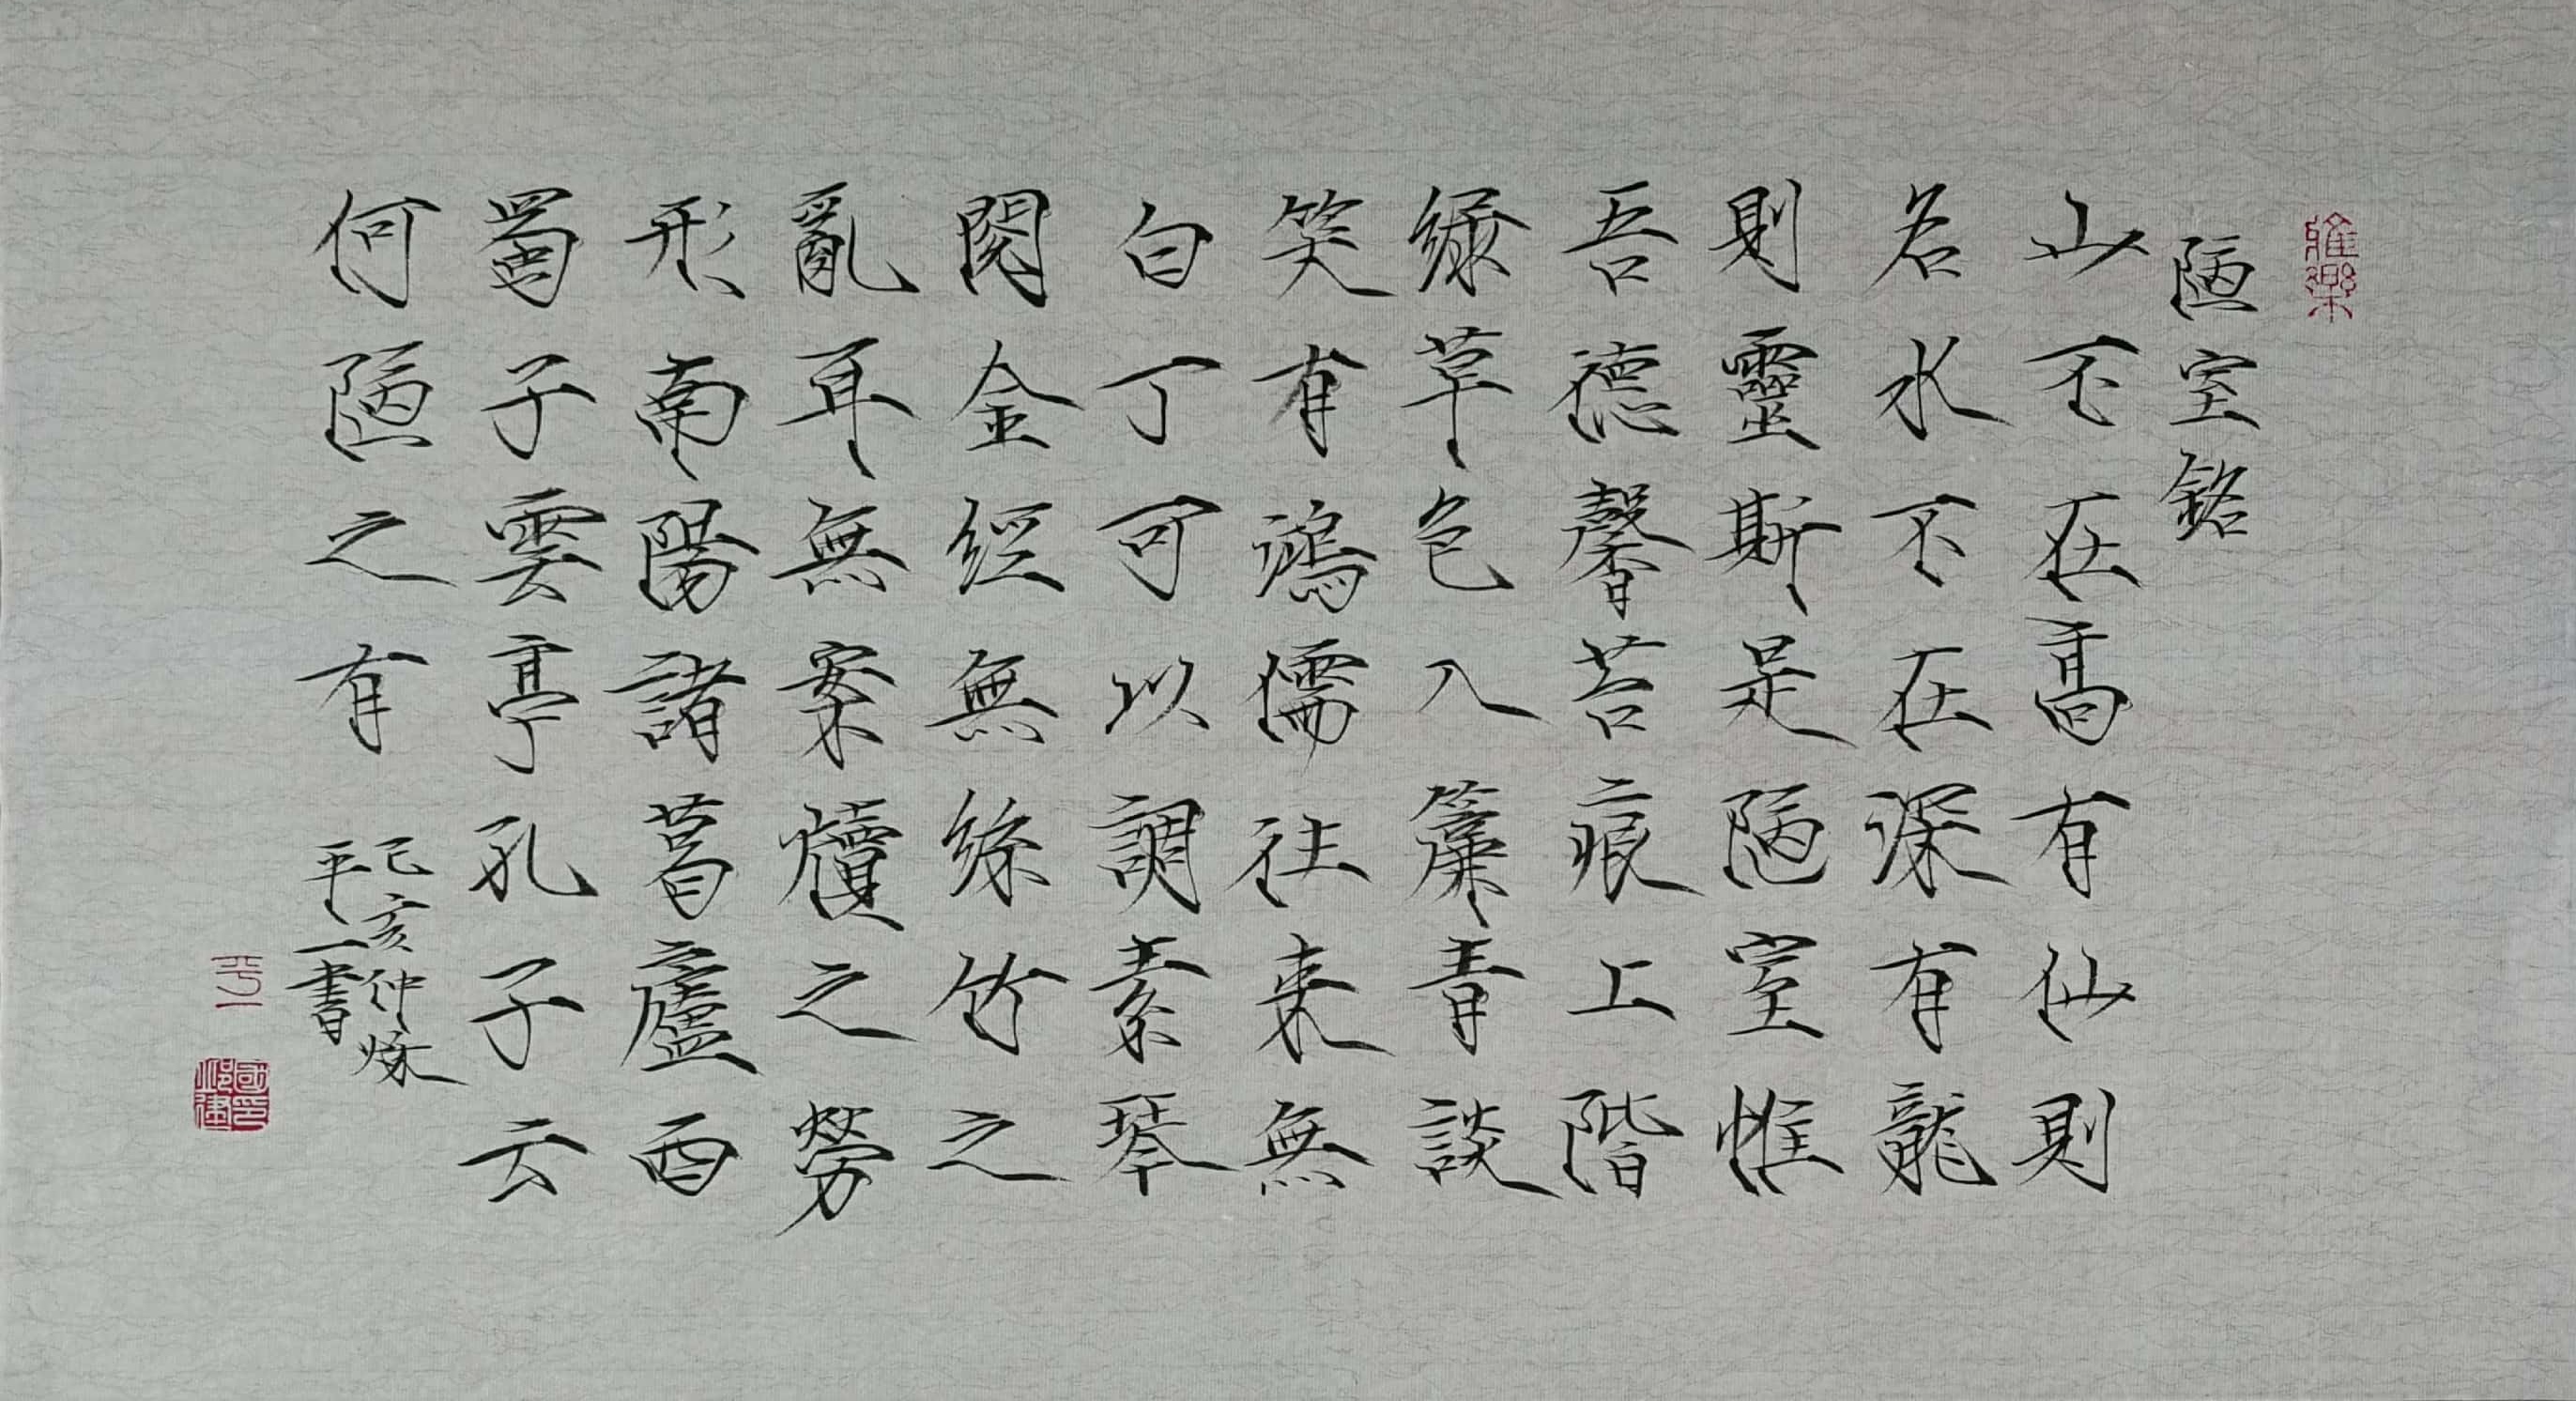 陋室銘
山不在高有仙則
名水不在深有龍
則靈斯是陋室惟
吾德馨苔痕上階
綠草色入簾青談
笑有鴻儒往来無
白丁可以調素琴
閱金經無絲竹之
亂耳無案牘之勞
形南陽諸葛廬西
蜀子雲亭孔子云
何陋之有
己亥仲秋
平一書
平一